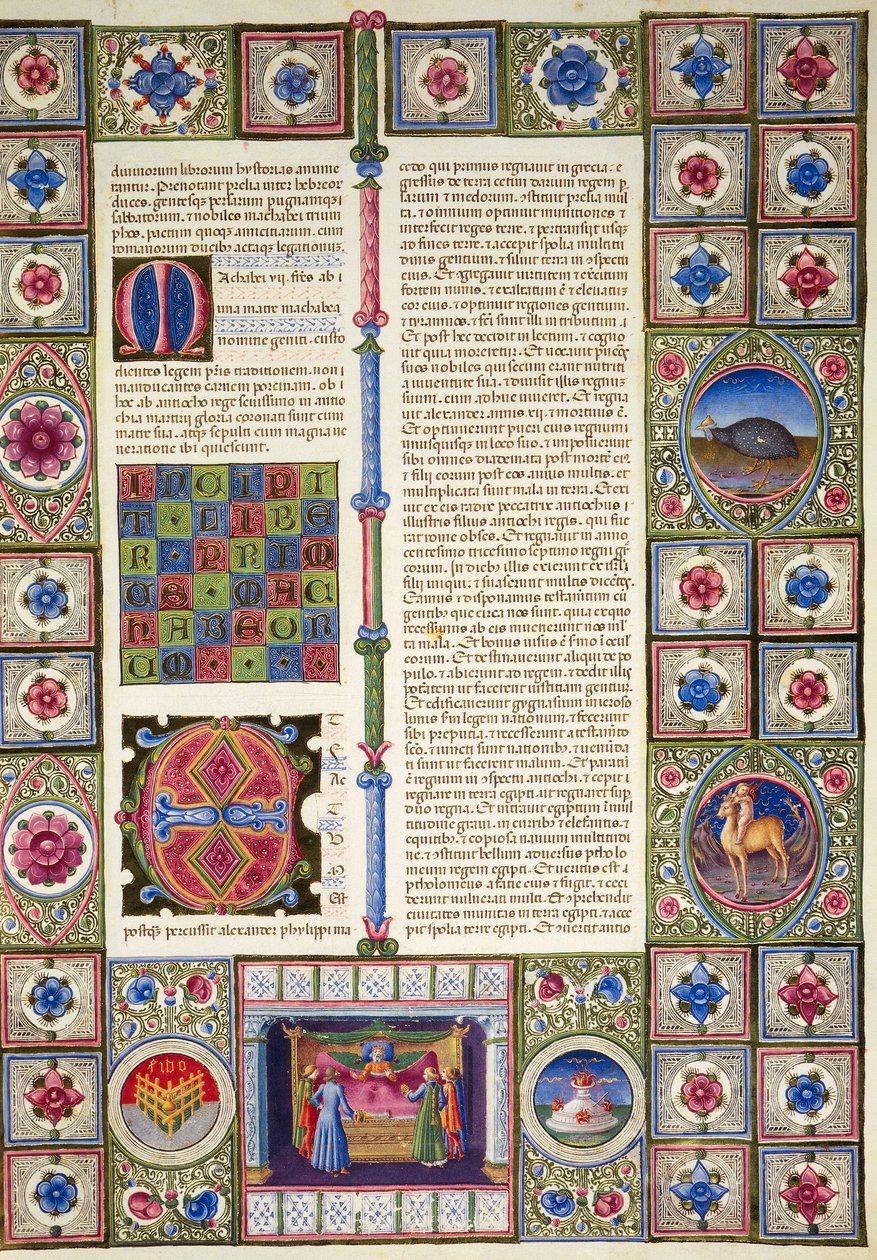 diuinorum librorum hystorias annume
rantur. Prenotant prelia inter hebreor
duces. gentesqz persarum pugnamqz
sabbatorum. et nobiles machabei trium
phos. pactum quoqz amicitiarum. cum
romanorum ducibz actaqz legationuz.
Machabei .vii. frēs ab i
una matre machabea
nomine geniti. custo
dientes legem pr̄is traditionem. non i
manducantes carnem porcinam. ob i
hoc ab antiocho rege seuissimo in antio
chia martirii gloria coronati sunt cum
matre sua. atqz sepulti cum magna ue
neratione ibi quiescunt.
INCIPI
T·LIBE
R·PRIM
US·MAC
HABEOR
UM
ET
F
Ac
T
B
Est
postqz percussit alexander phylippi ma
cedo qui primus regnauit in grecia. e
gressus de terra cetim darium regem p
sarum et medorum. ↄstituit prelia mul
ta. et omnium optinuit munitiones et
interfecit reges terre. et pertransiit usqz
ad fines terre. et accepit spolia multitu
dinis gentium. et siluit terra in ↄspectu
eius. Et ↄgregauit uirtutem et exercitum
fortem nimis. et exaltatum ē et eleuatuz
cor eius. et optinuit regiones gentium.
et tyrannos. et fc̄i sunt illi in tributum. i
Et post hec decidit in lectum. et cogno
uit quia moreretur. Et uocauit pueros
suos nobiles qui secum erant nutriti
a iuuentute sua. et diuisit illis regnuz
suum. cum adhuc uiueret. Et regna
uit alexander annis xii. et mortuus ē.
Et optinuerunt pueri eius regnum i
unusquisqz in loco suo. et imposuerunt
sibi omnes diademata post mortē eius
et filii eorum post eos annis multis. et
multiplicata sunt mala in terra. Et exi
uit ex eis radix peccatrix antiochus i
illustris filius antiochi regis. qui fue
rat rome obses. Et regnauit in anno
centesimo tricesimo septimo regni gre
corum. In diebz illis exierunt ex isrl̄
filii iniqui. et suaserunt multis dicentes.
Eamus et disponamus testamentum cū
gentibz que circa nos sunt. quia ex quo
recessimus ab eis inuenerunt nos mul
ta mala. Et bonus uisus ē sermo in ocul̄
eorum. Et destinauerunt aliqui de po
pulo. et abierunt ad regem. et dedit illis
potātem ut facerent iustitiam gentiuz.
Et edificauerunt gygnasium in ieroso
limis sm̄ legem nationum. et fecerunt
sibi preputia. et recesserunt a testamēto
sc̄o. et iuncti sunt nationibz. et uenunda
ti sunt ut facerent malum. Et paratū
ē regnum in ↄspectu antiochi. et cepit i
regnare in terra egipti. ut regnaret sup
duo regna. Et intrauit egiptum ī mul
titudine graui. in curribz et elefantis. et
equitibz. et copiosa nauium multitudi
ne. et ↄstituit bellum aduersus ptholo
meum regem egipti. Et ueritus est .i
ptholomeus a facie eius et fugit. et ceci
derunt uulnerati multi. Et ↄprehendit
ciuitates munitas in terra egipti. et acce
pit spolia terre egipti. Et uertit antio
FIDO